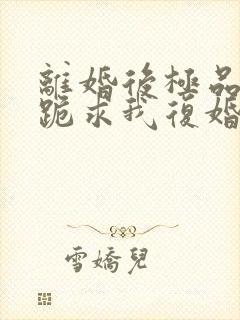 離婚後極品
跪求我復婚
雪嬌兒